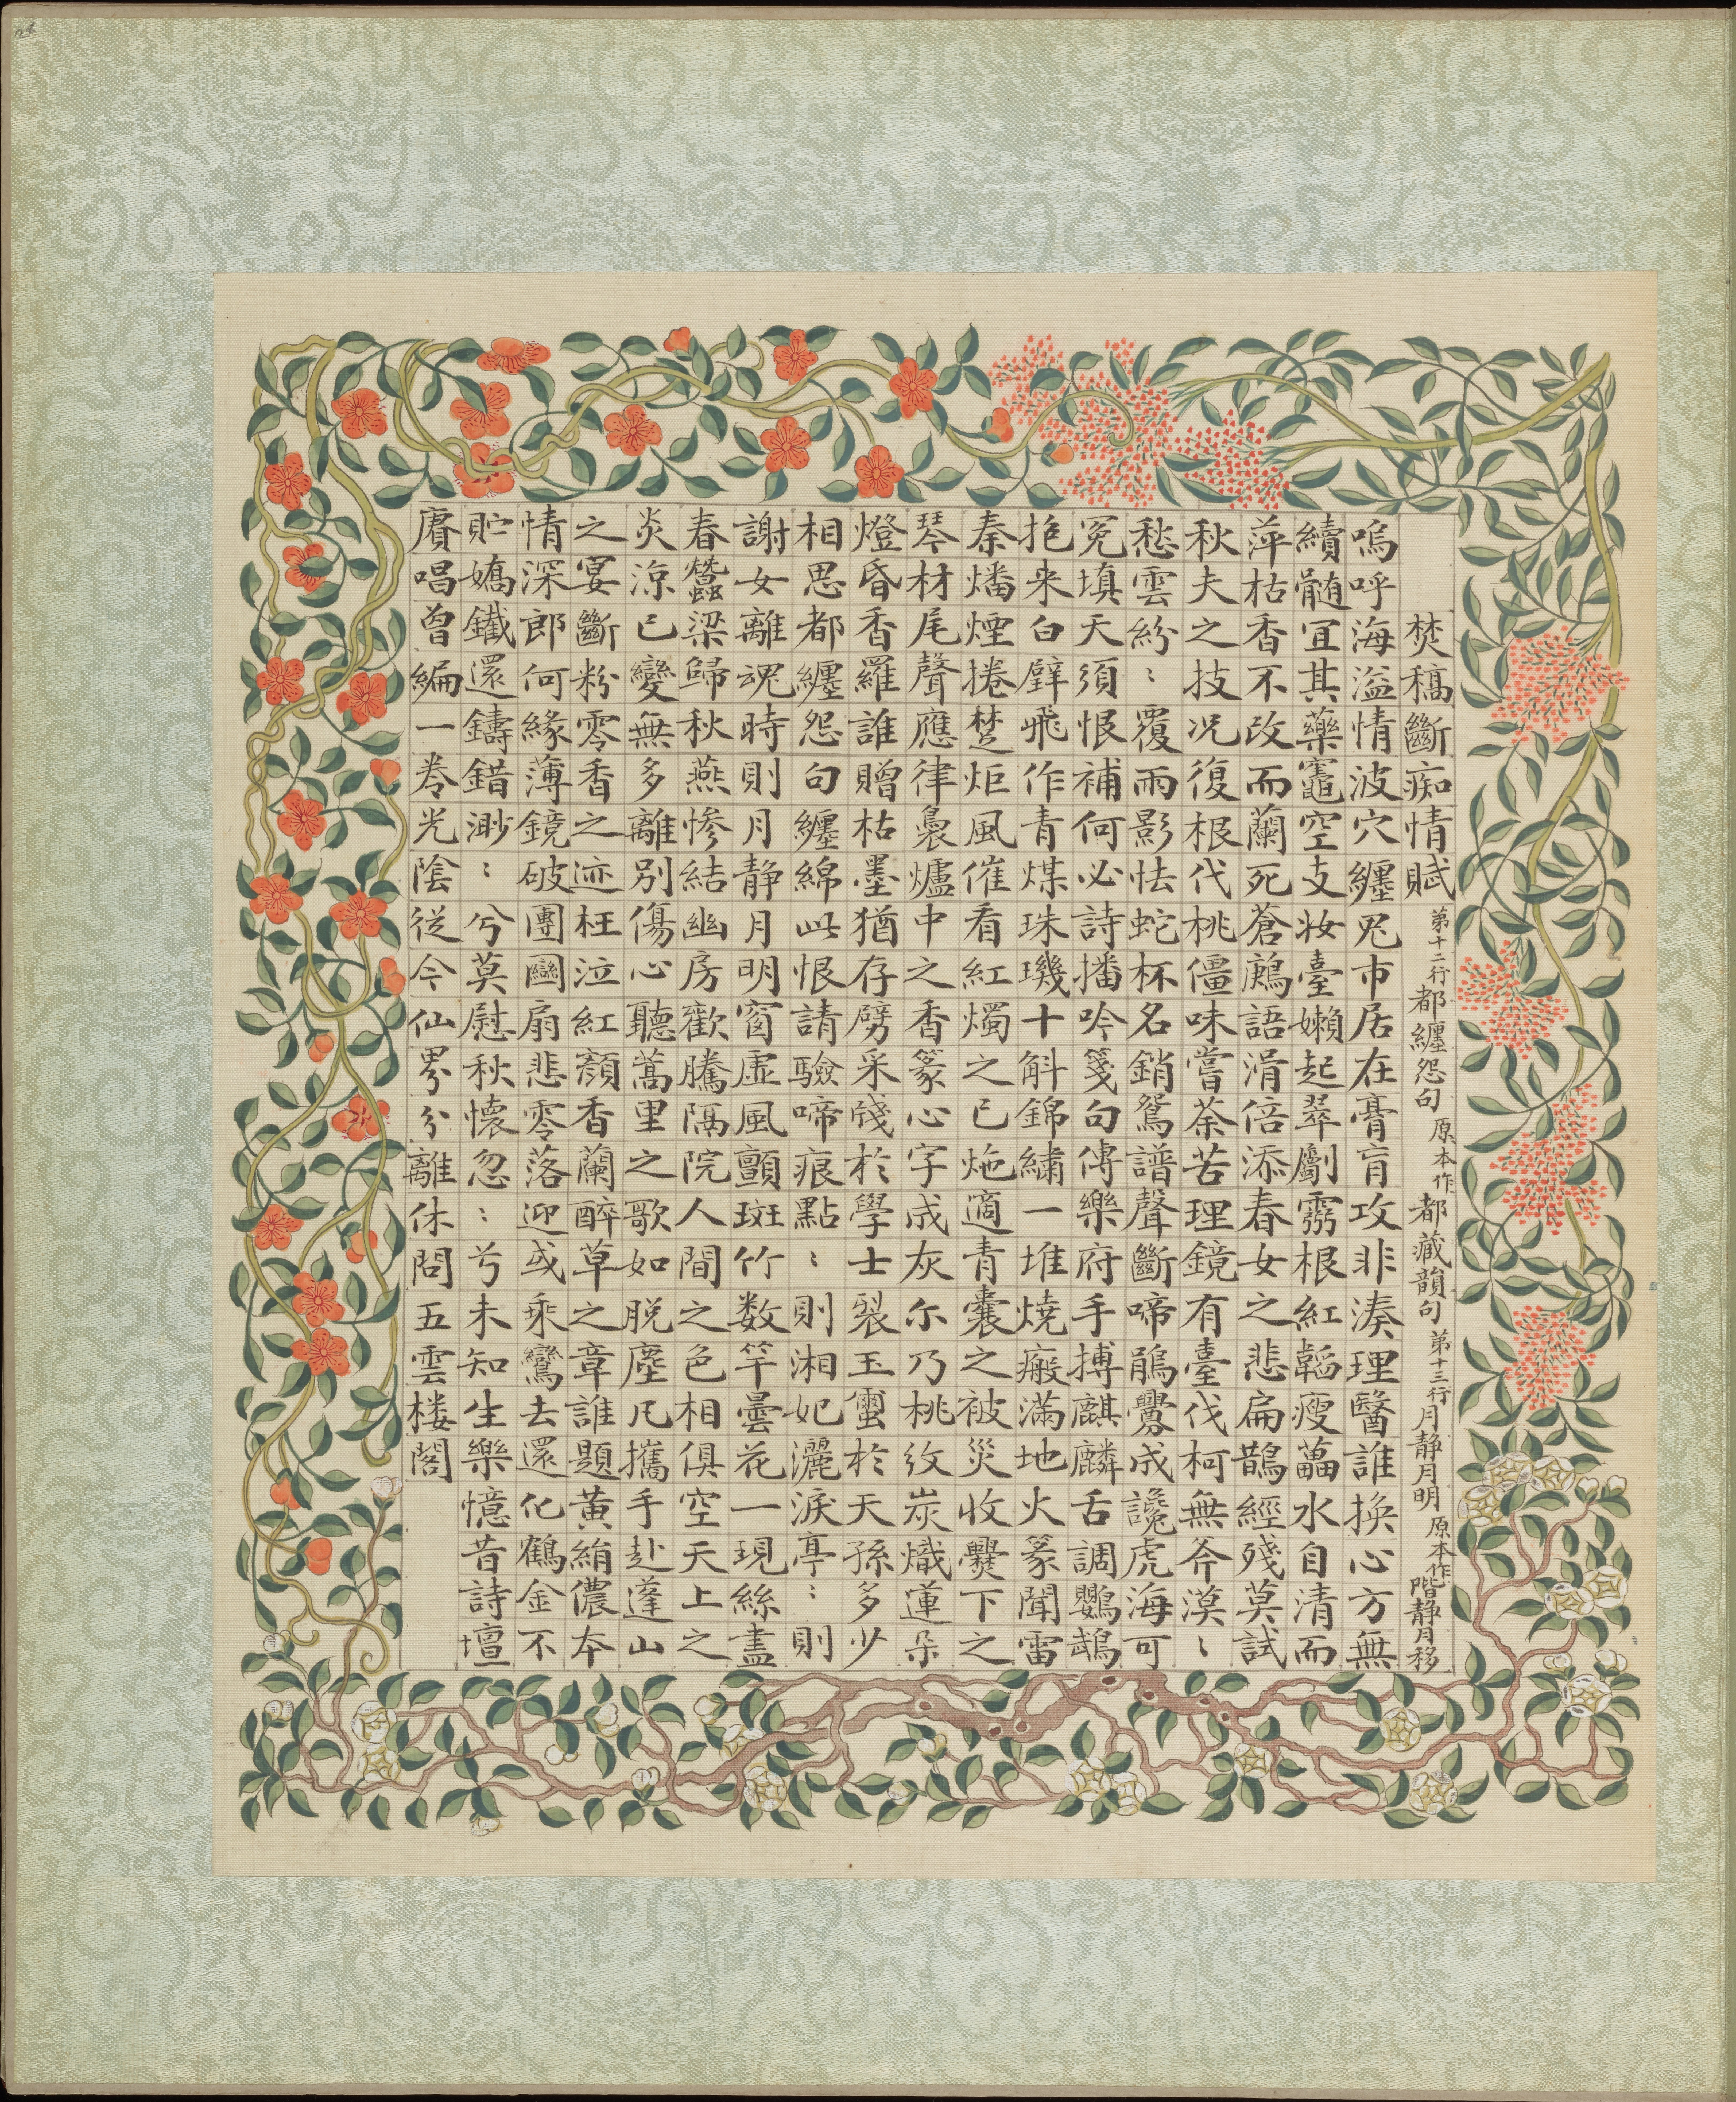 焚稿斷痴情賦 第十二行都纏怨句 原本作 都藏韻句 第十三行月静月明 原本作 階静月移
嗚呼海溢情波穴纏兕市居在膏肓攻非湊理醫誰換心方無
續髄宜其藥竈空支妝臺嬾起翠劚霧根紅韜瘦藟水自清而
萍枯香不改而蘭死蒼鷓語滑倍添春女之悲扁鵲經殘莫試
秋夫之技况復根代桃僵味嘗荼苦理鏡有臺伐柯無斧漠﹅
愁雲紛﹅覆雨影怯蛇杯名銷鴛譜聲斷啼鵑釁成讒虎海可
冤填天須恨補何必詩播吟箋句傳樂府手搏麒麟舌調鸚鵡
抱来白璧飛作青煤珠璣十斛錦繡一堆燒瘢滿地火篆聞雷
秦燔煙捲楚炬風催看紅燭之已灺適青囊之被災收爨下之
琴材尾聲應律裊爐中之香篆心字成灰尔乃桃紋炭熾蓮朵
燈昏香羅誰贈枯墨猶存劈采牋於學士裂玉璽於天孫多少
相思都纏怨句纏綿此恨請驗啼痕點﹅則湘妃灑淚亭﹅則
謝女離魂時則月静月明窗虚風顫斑竹数竿曇花一現絲盡
春蠶梁歸秋燕惨結幽房歡騰隔院人間之色相俱空天上之
炎涼已變無多離別傷心聽蒿里之歌如脱塵凡攜手赴蓬山
之宴斷粉零香之迹枉泣紅顔香蘭醉草之章誰題黄絹儂本
情深郎何緣薄鏡破團圞扇悲零落迎或乘鸞去還化鶴金不
貯嬌鐵還鑄錯渺﹅兮莫慰秋懷忽﹅兮未知生樂憶昔詩壇
賡唱曾編一卷光陰從今仙界分離休問五雲楼閣